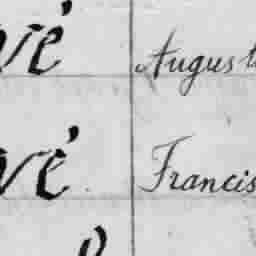 vé August
vé Francis